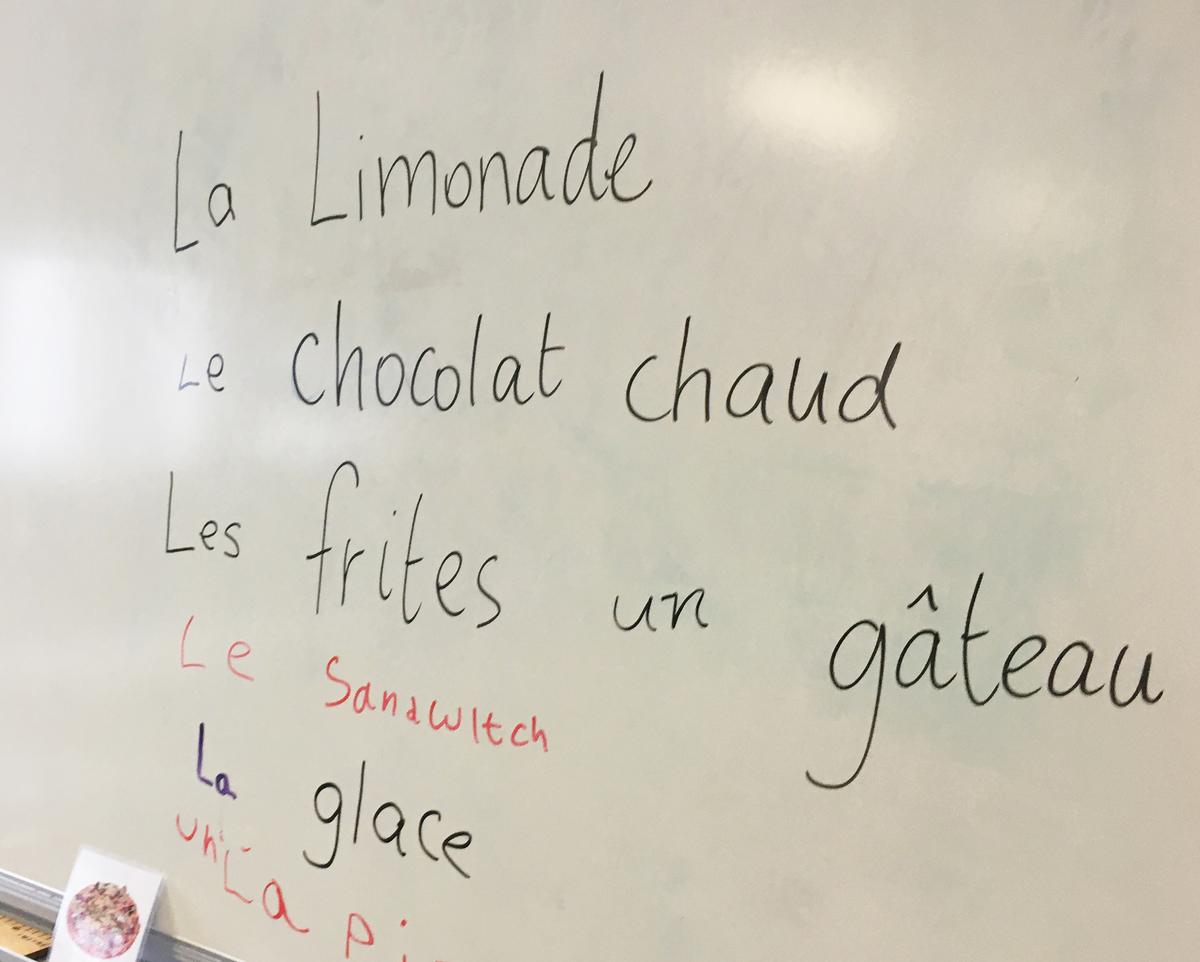 La Limonade
Le chocolat chaud
Les frites un gâteau
Le Sandwitch
La glace
un La